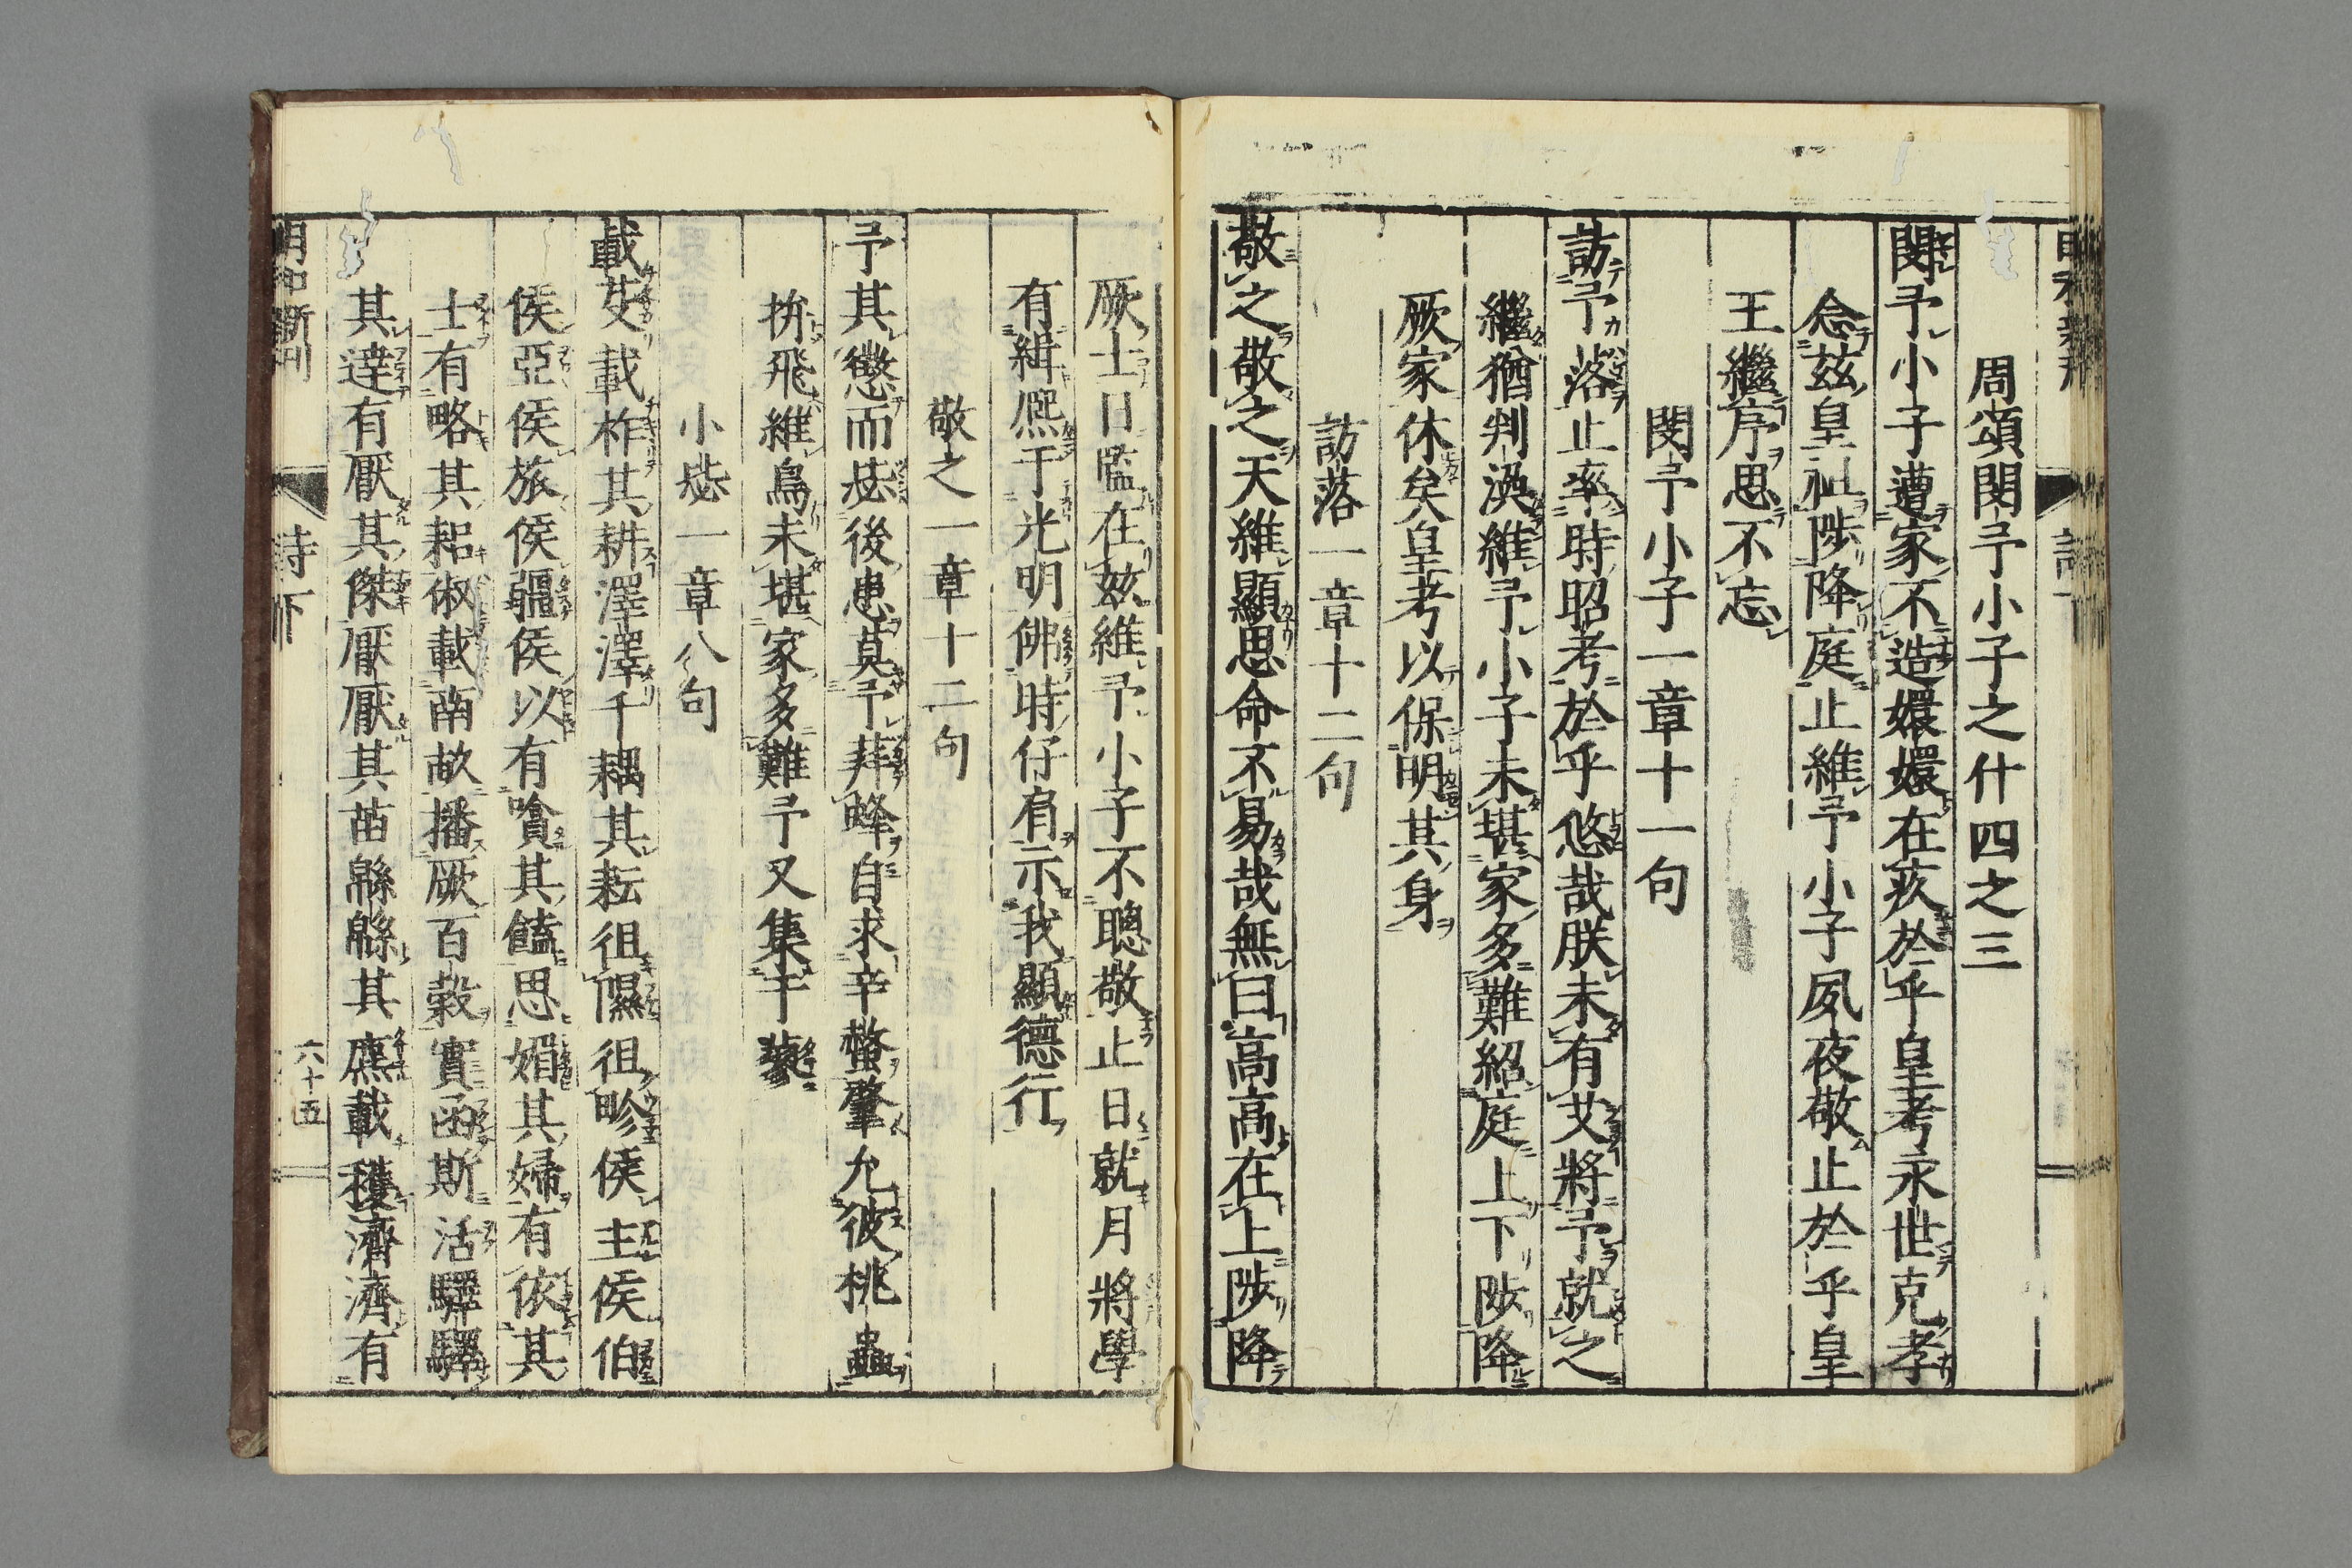 周頌閔予小子之什四之三
閔予小子遭家不造嬛嬛在疚於乎皇考永世克孝
念茲皇祖陟降庭止維予小子夙夜敬止於乎皇
王繼序思不忘
閔予小子一章十一句
訪予落止率時昭考於乎悠哉朕未有艾將予就之
繼猶判渙維予小子未堪家多難紹庭上下陟降
厥家休矣皇考以保明其身
訪落一章十二句
敬之敬之天維顯思命不易哉無曰高高在上陟降
厥士日監在玆維予小子不聰敬止日就月將學
有緝熈于光明佛時仔肩示我顯德行
敬之一章十二句
予其懲而毖後患莫予荓蜂自求辛螫肇允彼桃蟲
拚飛維鳥未堪家多難予又集于蓼
小毖一章八句
載芟載柞其耕澤澤千耦其耘徂隰徂畛侯主侯伯
侯亞侯旅侯疆侯以有嗿其饁思媚其婦有依其
士有略其耜俶載南畝播厥百穀實函斯活驛驛
其達有厭其傑厭厭其苗緜緜其麃載穫濟濟有
明和新刊
詩下
六十五